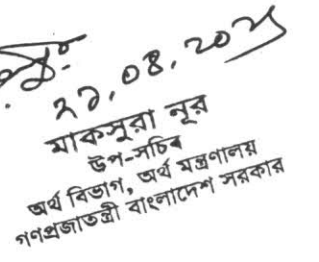 ২১.০৪.
মাকসুরা নূর
উপ-সচিব
অর্থ বিভাগ, অর্থ মন্ত্রণালয়
গণপ্রজাতন্ত্রী বাংলাদেশ সরকার